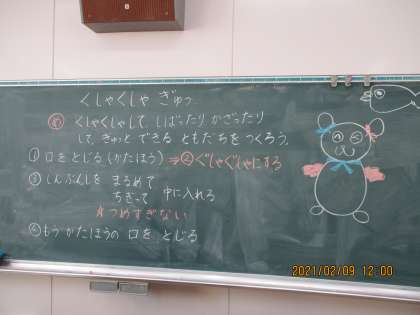 くしゃくしゃ ぎゅっ
め くしゃくしゃして、しばったり かざったり
して、ぎゅっと できる ともだちをつくろう。
① 口をとじる(かたほう) ⇒ ②ぐしゃぐしゃにする
③ しんぶんしを まるめて
ちぎって 中に入れる
★つめすぎない
④ もうかたほうの 口を とじる
2021/02/09 12:00